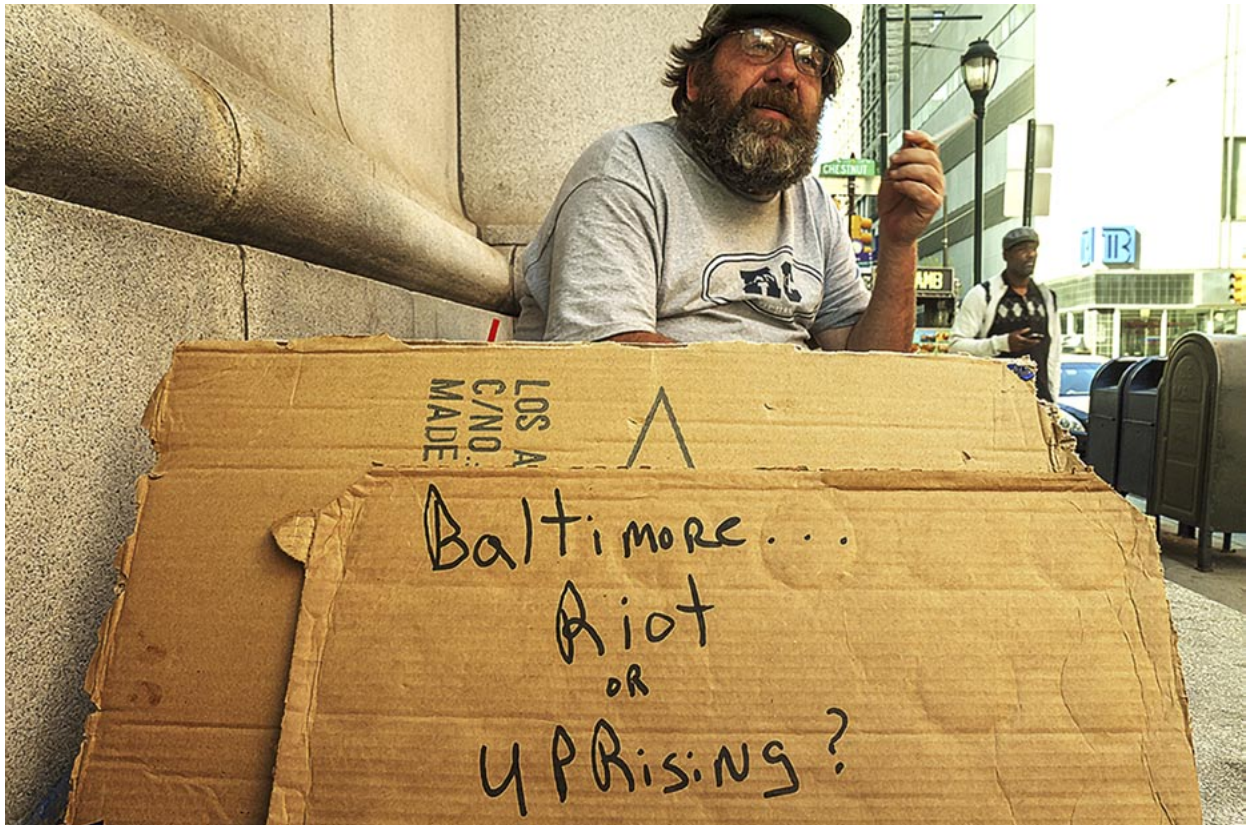 CHESTNUT
LOS A
C/NO.
MADE
Baltimore...
Riot
OR
UPRising?